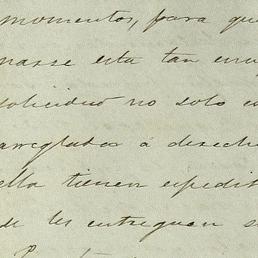 momentos, para que
nasse esta tan
solicitud no solo
arreglados á derecho
ella tienen espedit
de les entreguen s